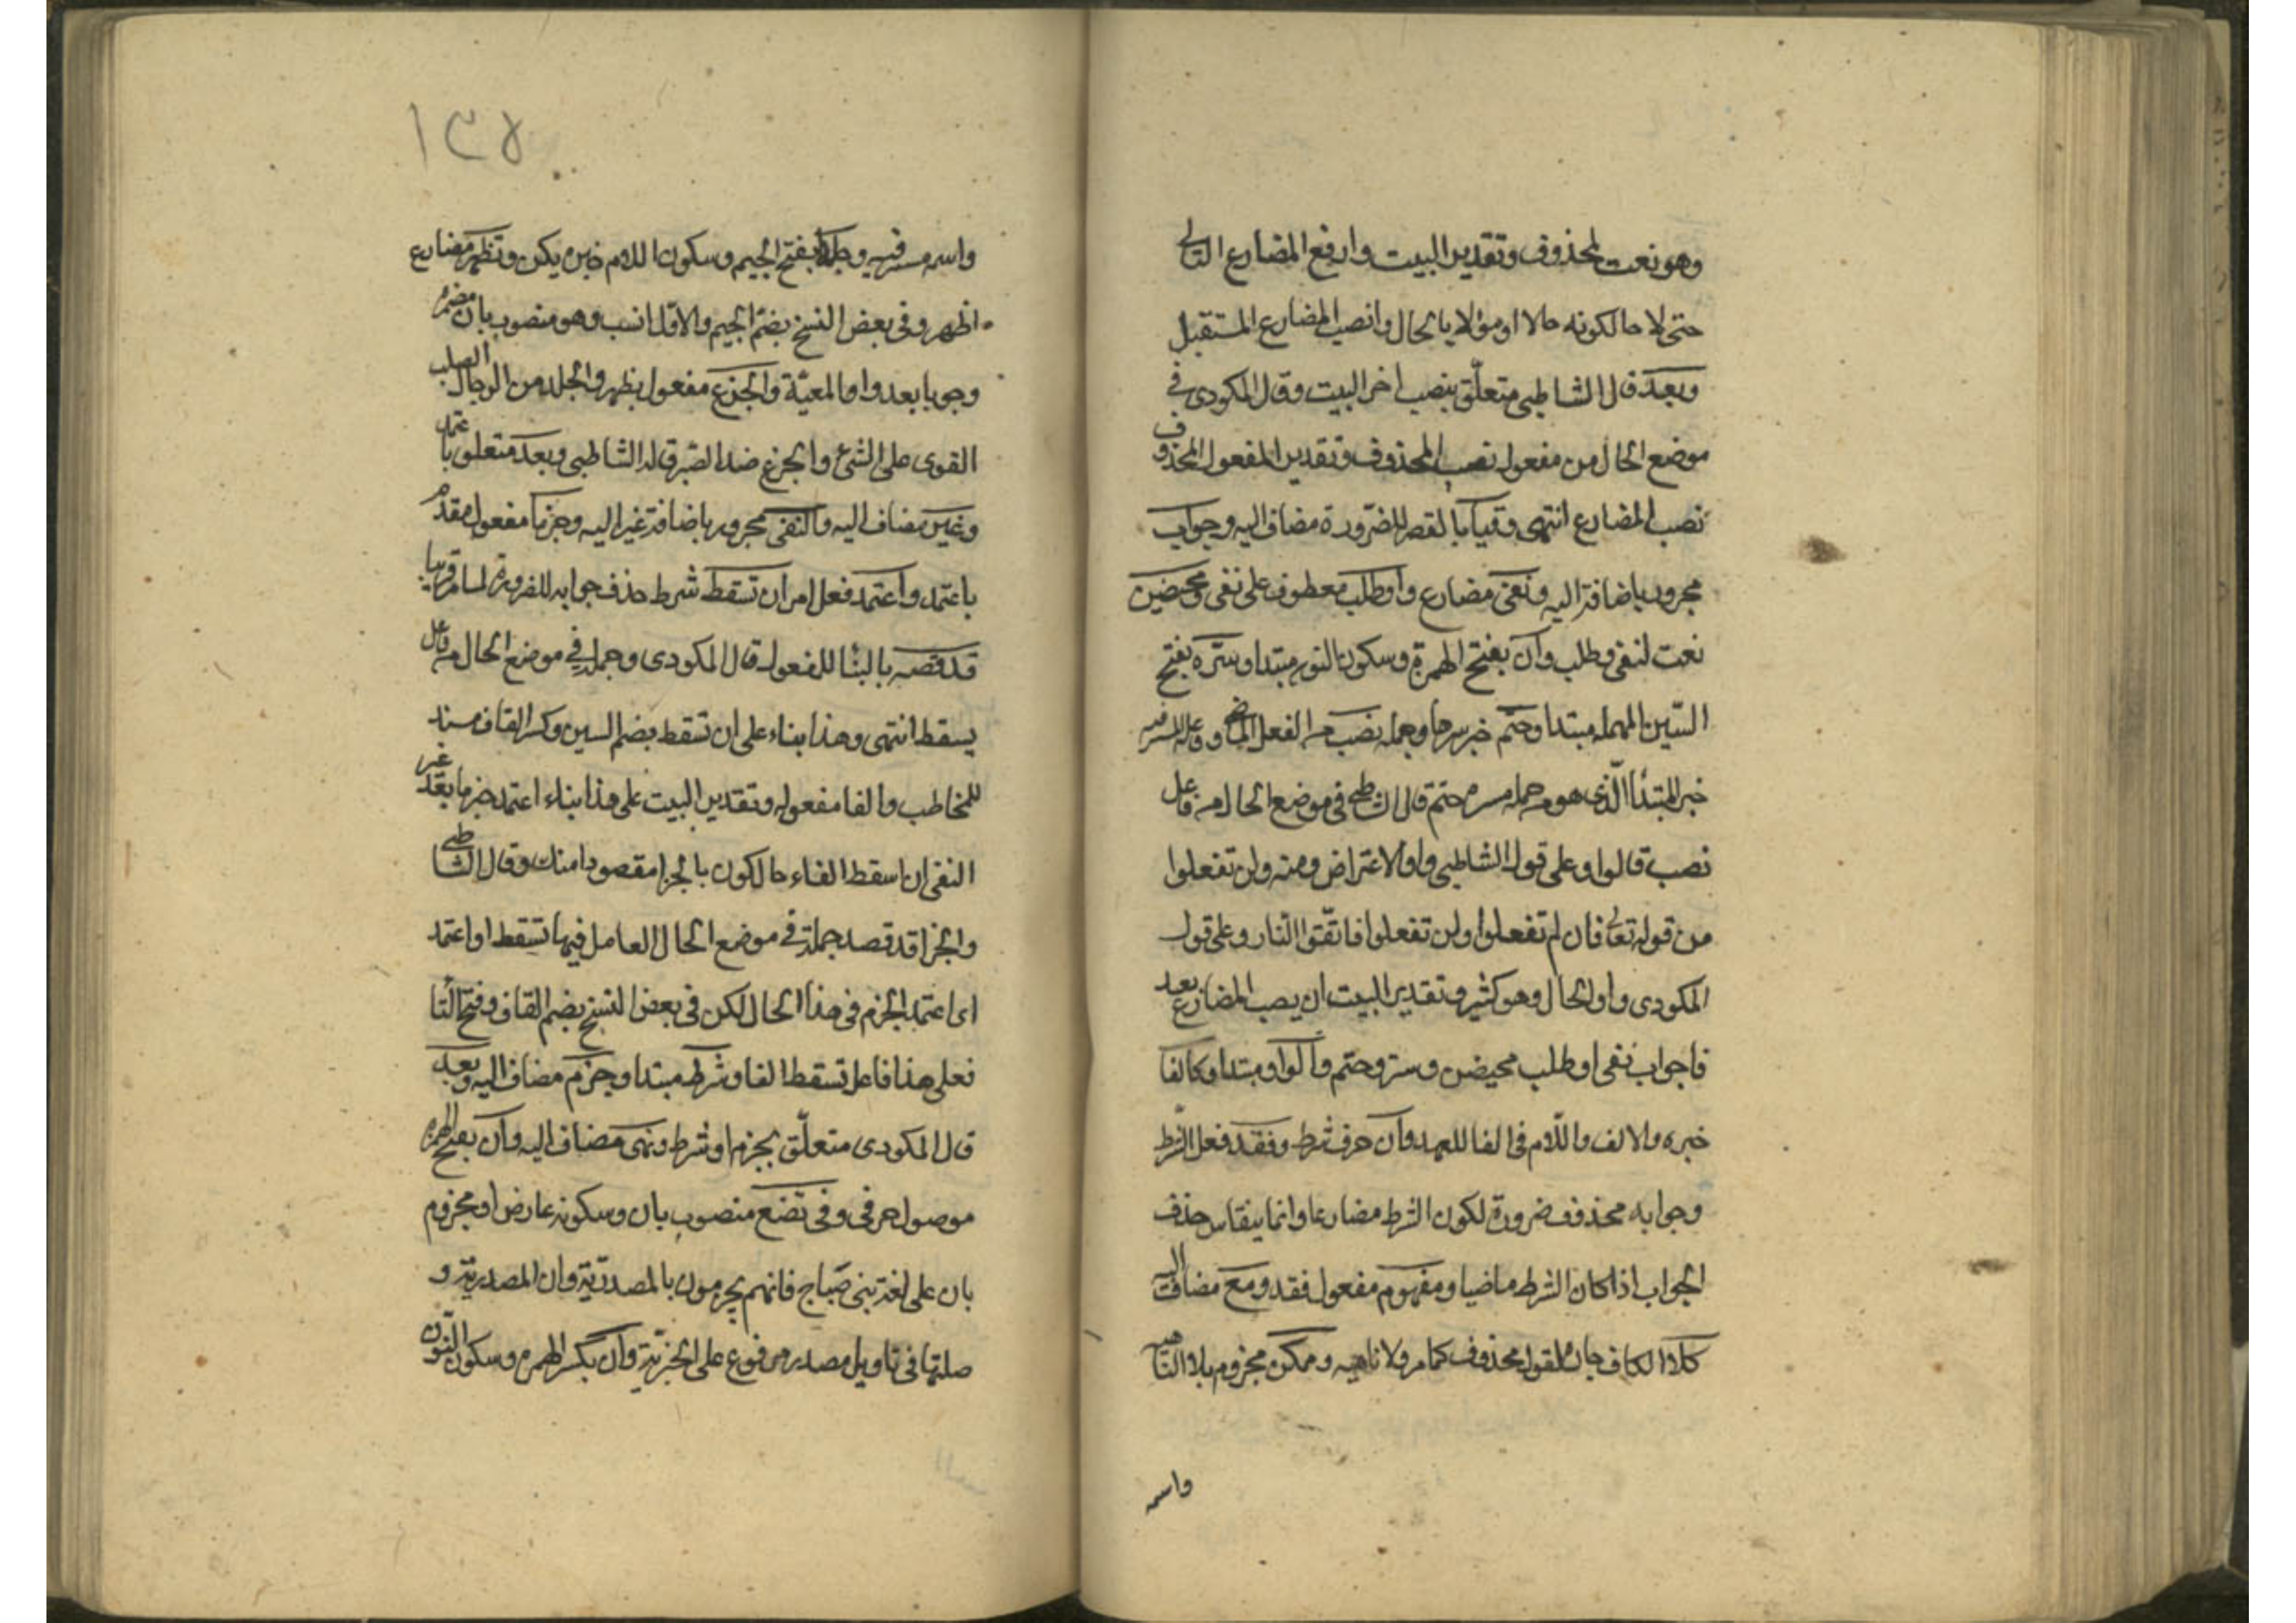 وهو نعت لمحذوف وتقدير البيت وارفع المضارع التالي
حتى لا حا لكونه حالا او مؤلا بالحال وانصب المضارع المستقبل
وبعد قال الشاطبي متعلّق بنصب اخر البيت وقال المكودي في
موضع الحال من مفعول نصب المحذوف وتقدير المفعول المحذوف
نصب المضارع انتهى وقيا بالقصر للضرورة مضاف اليه وجواب
مجرور باضافته اليه ونفى مضارع وأو طلب معطوف على نفى ومحضين
نعت لنفى وطلب وأن بفتح الهمزة وسكون النون مبتدا وستره بفتح
السّين المهملة مبتدا وحتم خبر سرها وجملة نصب من الفعل الماضي وفاعله المستتر فيه
خبر المبتدأ الّذي هو وجملة سره حتم قال الشاطبي في موضع الحال من فاعل
نصب قالوا وعلى قول الشاطبي واو الاعتراض ومنه ولن تفعلوا
من قوله تعالى فان لم تفعلوا ولن تفعلوا فاتّقوا النار وعلى قول
المكودي واو الحال وهو كثير وتقدير البيت ان يصب المضارع بعد
فاجواب نفى او طلب محيضن وستر وحتم وآلواو مبتدا وكالفا
خبره والالف واللّام في الفا للعهد وان حرف شرط وفقد فعل الشّرط
وجوابه محذوف ضرورة لكون الشرط مضارعا وانما ينقاس حذف
الجواب اذا كان الشرط ماضيا ومفهوم مفعول فقد ومع مضاف اليه
كلا الكاف جارة لقول محذوف كما مر ولا ناهيه وتكن مجزوم بلا الناهيه
واسمه
١٣٨
واسمه مستتر فيه وجلدا بفتح الجيم وسكون اللام خبره يكن وتظهر مضارع
اظهر وفي بعض النسخ بضم الجيم والاول انسب وهو منصوب بان مضمره
وجوبا بعد واو المعيّة والجزع مفعول بظهر والجلد من الرجال الصلب
القوى على الشئ والجزع ضد الصّبر قاله الشاطبي وبعد متعلق باعتمد
وغير مضاف اليه والنفى مجرور باضافة غير اليه وجزما مفعول مقدم
باعتمد واعتمد فعل امر ان تسقط شرط حذف جوابه للضرورة لما مر قريبا
قد قصد بالبنا للمفعول قال المكودي وجملته في موضع الحال من فاعل
يسقط انتهى وهذا بناء على ان تسقط بضم السين وكسر القاف مسند
للمخاطب والفا مفعوله وتقدير البيت على هذا بناء اعتمد جزما بعد غير
النفى ان اسقط الفاء حالكون بالجزا مقصودا منك وقال الشاطبي
والجزا قد قصد جملة في موضع الحال العامل فيها تسقط او اعتمد
اى اعتمد الجزم في هذا الحال لكن في بعض النسخ بضم القاف وفتح التا
فعلى هذا فاعل تسقط الفا وشرط مبتدا وجزم مضاف اليه وبعد
قال المكودي متعلّق بجزم او شرط ونهى مضاف اليه وأن بفتح الهمزه
موصول حرفي وفي تضع منصوب بان وسكونه عارض او مجزوم
بان على لغة بنى صباح فانهم يجزمون بالمصدريّة وان المصدرية و
صلتها في تاويل مصدر مرفوع على الخبريّة وأن بكسر الهمزه وسكون النون